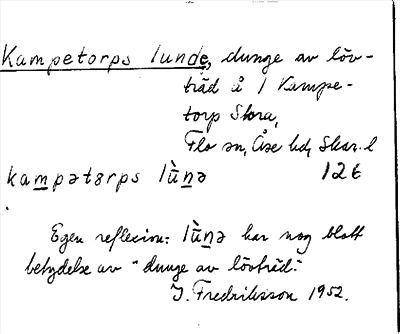 Kampetorps lunde, dunge av löv-
träd å 1 Kampe-
torp Stora,
Flo sn, Åse hd, Skar. l
kampətɵrps lùnə 12 t
Egen reflexion: lùnə har nog blott
betydelse av "dunge av lövträd."
J. Fredriksson 1952.